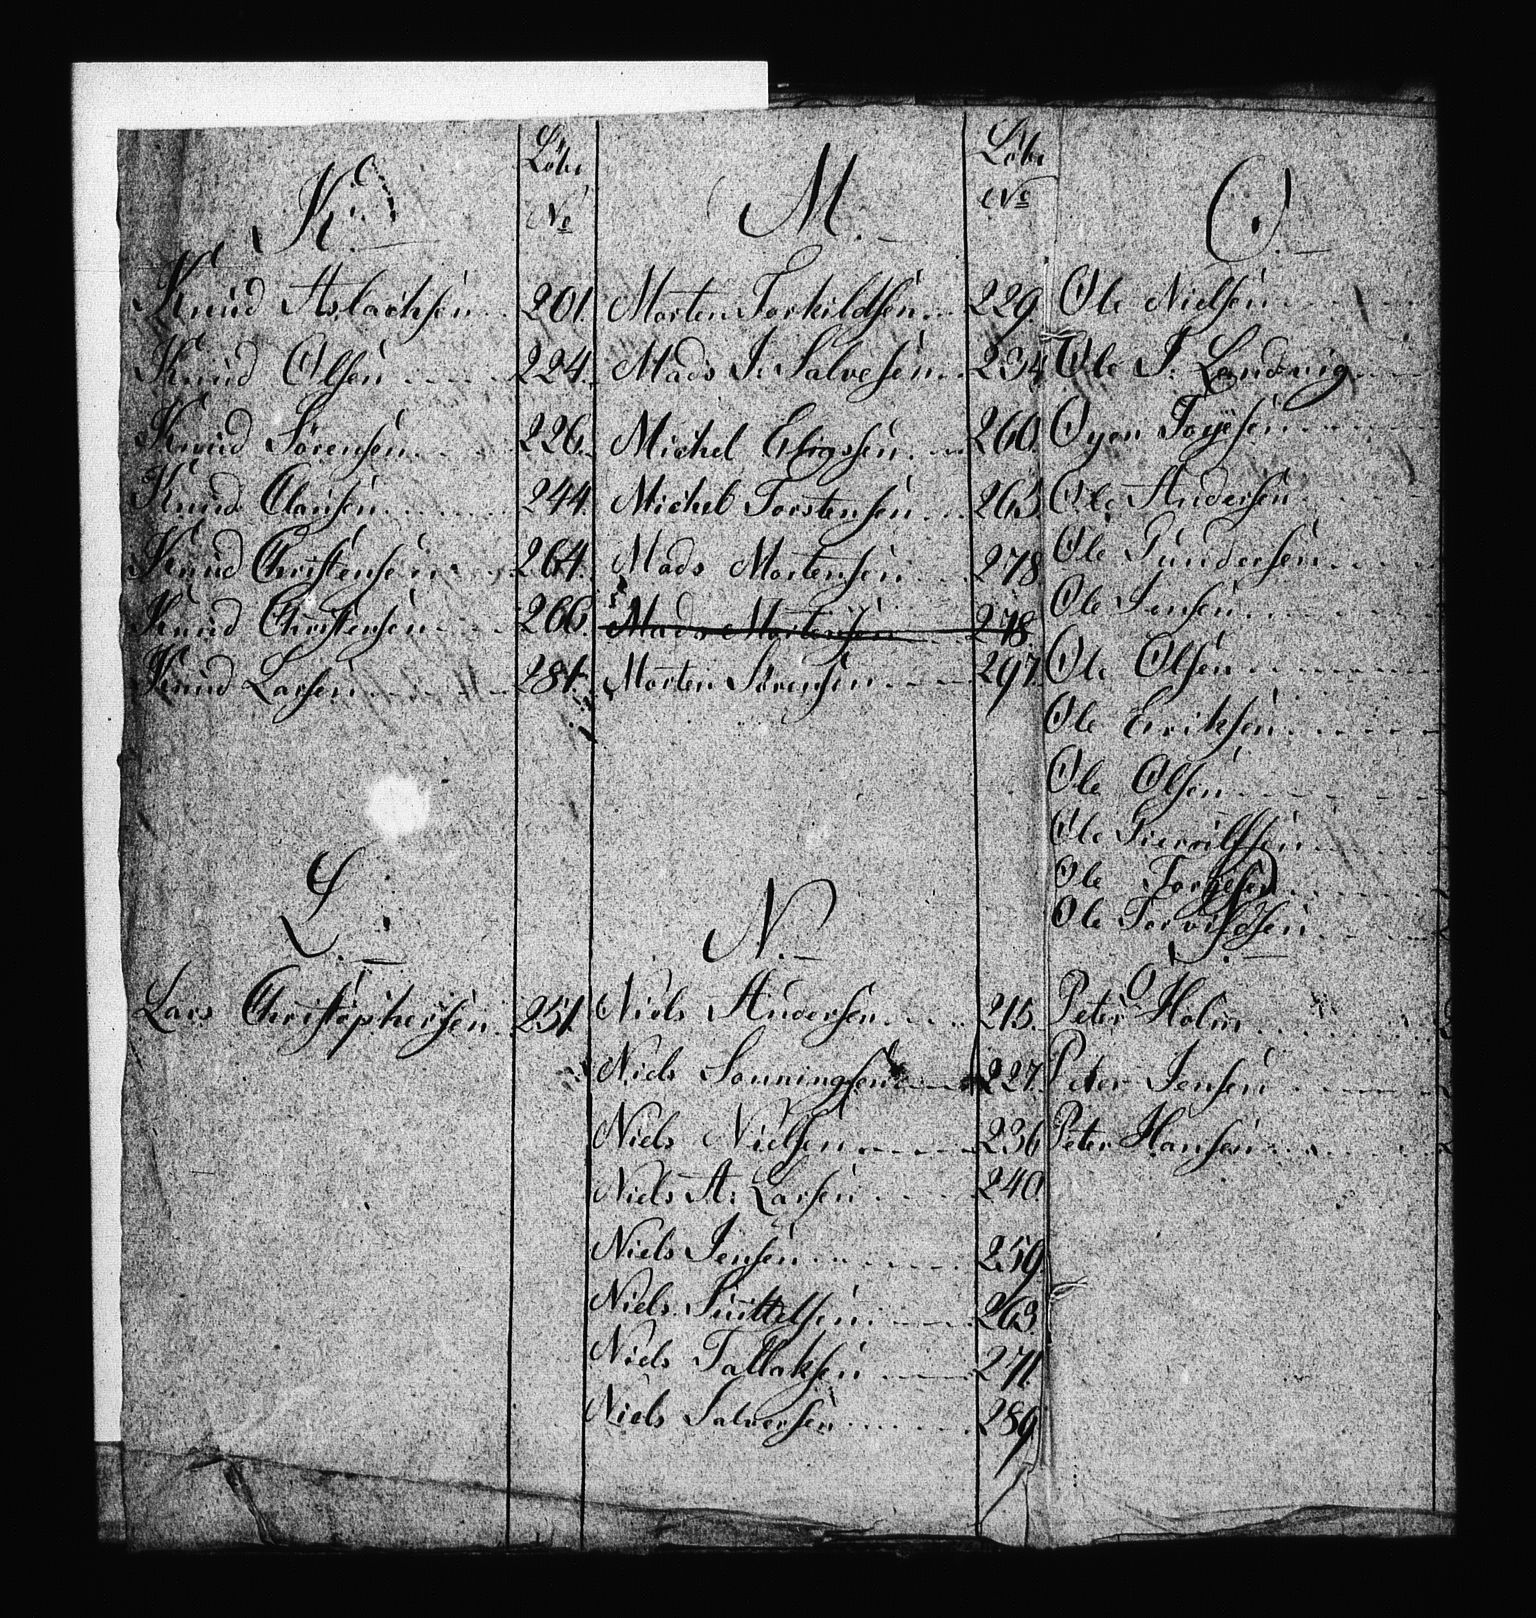 K.
Løbe
No
Knud Aslachsen 201.
Knud Olsen 224.
Knud Sørensen 226.
Knud Clausen 244.
Knud Christensen 264.
Knud Christensen 266.
Knud Larsen 281.
L.
Lars Christophersen 251
M.
Løbe
No
Morten Torkildsen 229.
Mads J. Salvesen 234
Michel 260.
Michel Torstensen 263
Mads Mortensen 278
Mads Mortensen 278.
Morten Sørensen 297
N.
Niels Andersen 215.
Niels 227.
Niels Nielsen 236
Niels A: Larsen 240
Niels Jensen 259.
Niels 263.
Niels Tallaksen 271
Niels Salvesen 289
O.
Ole Nielsen
Ole J: Landvig
Oyen
Ole Andersen
Ole Gundersen
Ole Jensen
Ole Olsen
Ole Eriksen
Ole Olsen
Ole
Ole
Ole
P.
Peter Holm
Peter Jensen
Peter Hansen